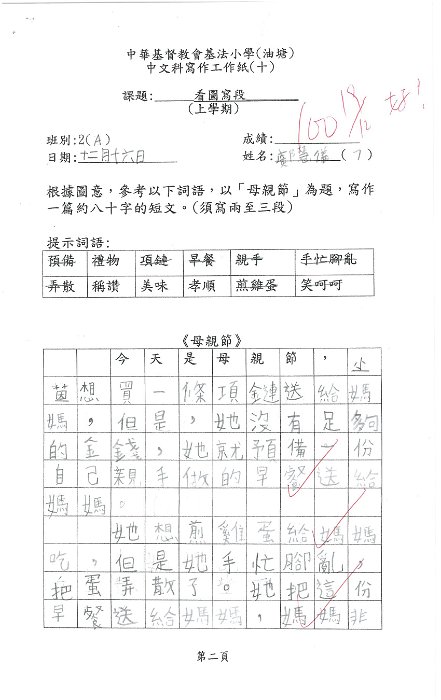 中華基督教會基法小學(油塘)
中文科寫作工作紙(十)
課題: 看圖寫段
(上學期)
100 18/12 好!
班別: 2(A) 成績:
日期: 十二月十六日 姓名: 鄭慧儀 (7)
根據圖意,參考以下詞語,以「母親節」為題,寫作
一篇約八十字的短文。(須寫兩至三段)
提示詞語:
預備 禮物 項鏈 早餐 親手 手忙腳亂
弄散 稱讚 美味 孝順 煎雞蛋 笑呵呵
《母親節》
今天是母親節,小
茵想買一條項鏈送給媽
媽,但是,她沒有足夠
的金錢,她就預備一份
自己親手做的早餐送給
媽媽。
她想煎雞蛋給媽媽
吃,但是她手忙腳亂,
把蛋弄散了。她把這份
早餐送給媽媽,媽媽非
第二頁